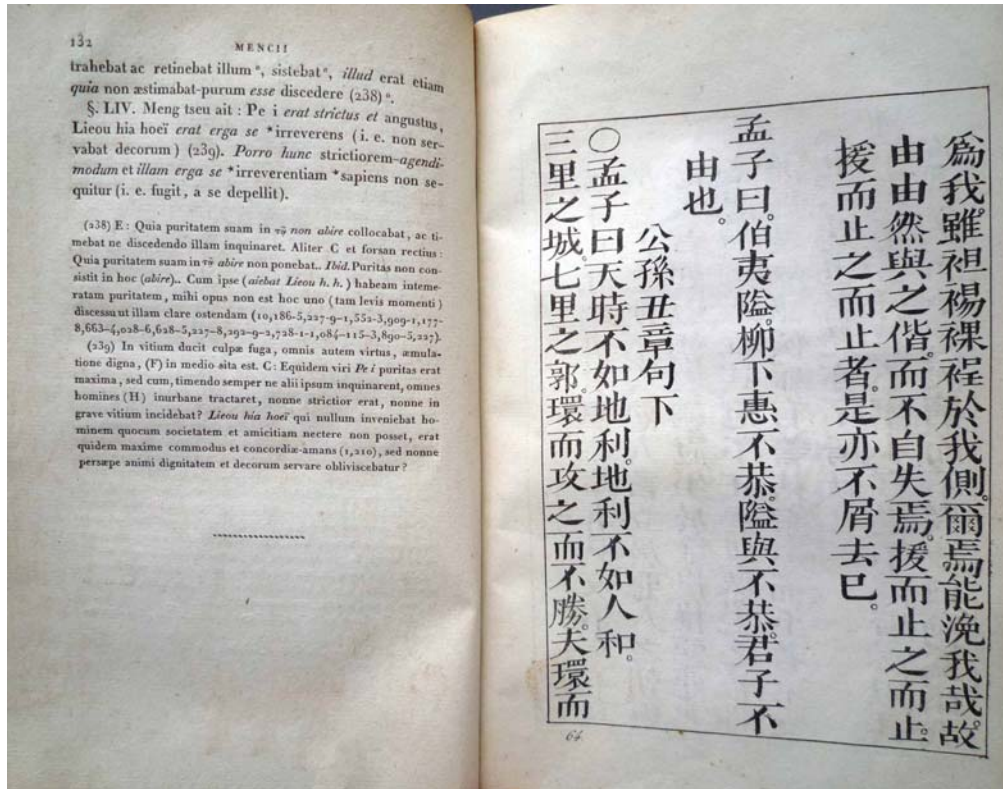 132
MENCII
trahebat ac retinebat illum ", sistebat", illud erat etiam
quia non æstimabat-purum esse discedere (238) ".
§. LIV. Meng tseu ait : Pe i erat strictus et angustus,
Lieou hia hoeï erat erga se *irreverens (i. e. non ser-
vabat decorum) (239). Porro hunc strictiorem-agendi-
modum et illam erga se *irreverentiam *sapiens non se-
quitur (i. e. fugit, a se depellit).
(238) E : Quia puritatem suam in τῷ non abire collocabat, ac ti-
mebat ne discedendo illam inquinaret. Aliter C et forsan rectius :
Quia puritatem suam in τῷ abire non ponebat.. Ibid. Puritas non con-
sistit in hoc (abire).. Cum ipse (aiebat Lieou h. h.) habeam inteme-
ratam puritatem, mihi opus non est hoc uno (tam levis momenti)
discessu ut illam clare ostendam (10,186-5,227-9-1,552-3,909-1,177-
8,663-4,028-6,628-5,227-8,292-9-2,728-1-1,084-115-3,890-5,227).
(239) In vitium ducit culpæ fuga, omnis autem virtus, æmula-
tione digna, (F) in medio sita est. C : Equidem viri Pe i puritas erat
maxima, sed cum, timendo semper ne alii ipsum inquinarent, omnes
homines (H) inurbane tractaret, nonne strictior erat, nonne in
grave vitium incidebat? Lieou hia hoeï qui nullum inveniebat ho-
minem quocum societatem et amicitiam nectere non posset, erat
quidem maxime commodus et concordiæ-amans (1,210), sed nonne
persæpe animi dignitatem et decorum servare obliviscebatur?
爲我。雖袒裼裸裎於我側。爾焉能浼我哉。故
由由然與之偕。而不自失焉。援而止之而止。
援而止之而止者。是亦不屑去已。
孟子曰。伯夷隘。柳下惠不恭。隘與不恭。君子不
由也。
公孫丑章句下
〇孟子曰天時不如地利。地利不如人和。
三里之城。七里之郭。環而攻之而不勝。夫環而
64